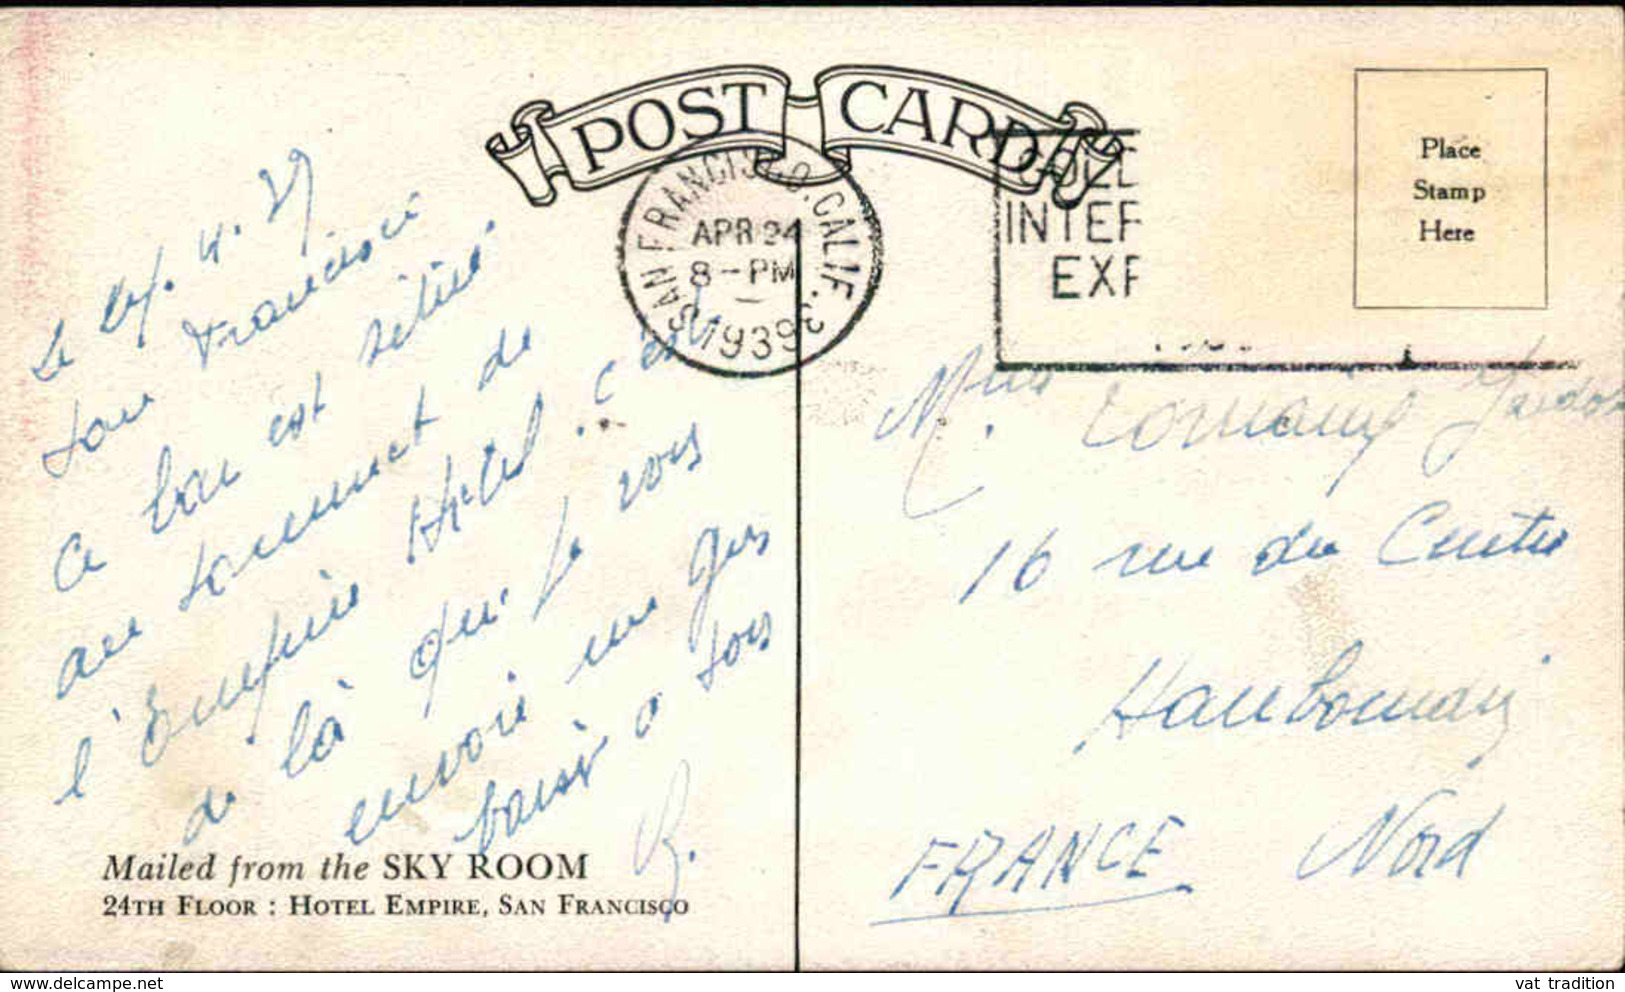 POST CARD
SAN FRANCISCO, CALIF.
APR 24
8 - PM
1939
INTER
EXP
Place
Stamp
Here
Le 24. 4. 39
San Francisco
Ce bar est situé
au sommet de
l'Empire Hotel. c'est
de là que je vois
envoie un gros
baiser à tous
R.
Mailed from the SKY ROOM
24TH FLOOR : HOTEL EMPIRE, SAN FRANCISCO
16 rue du Centre
Haubourdin
FRANCE Nord
vat tradition